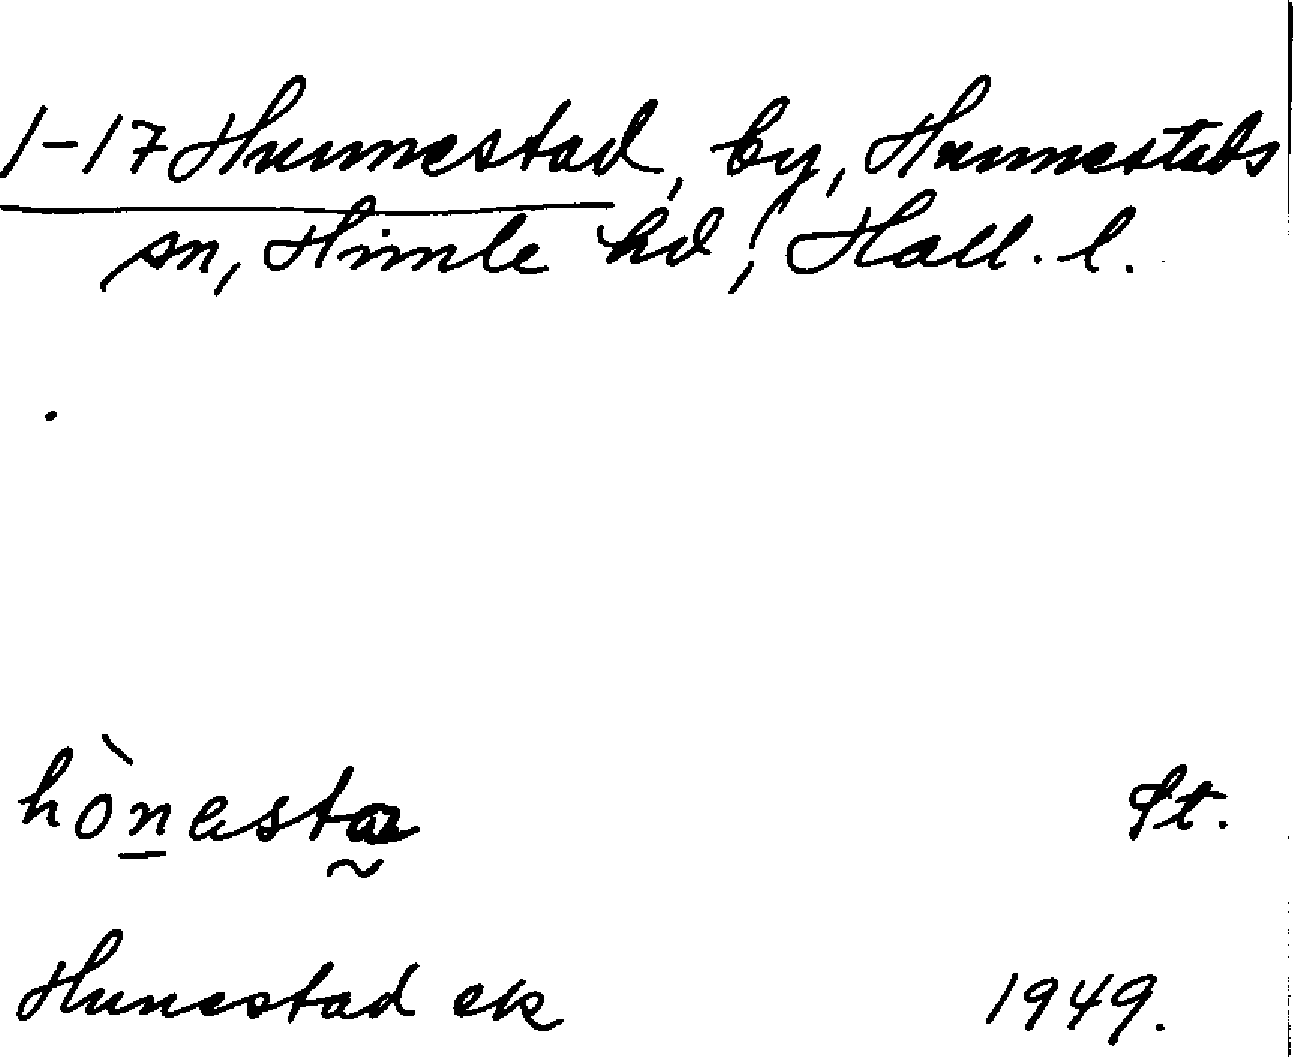 1-17 Hunnestad, by, Hunnestads
sn, Himle hd, Hall. l.
hònesta St.
Hunestad ek 1949.